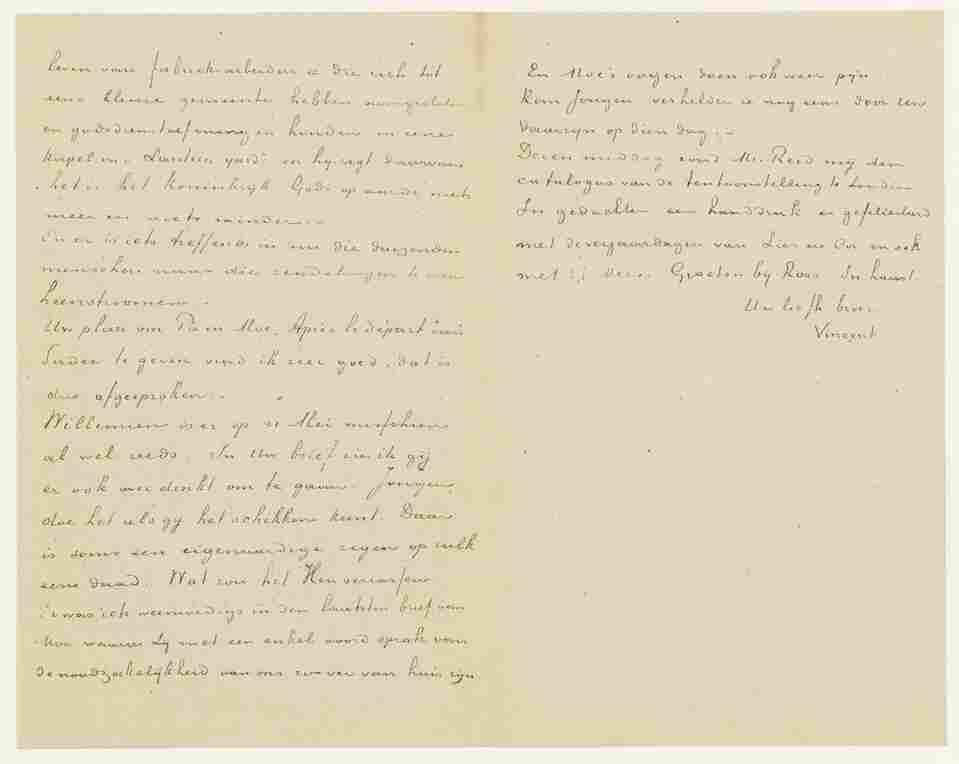 leven van fabriekarbeiders & die zich tot
eene kleine gemeente hebben aangesloten
en godsdienstoefening en houden in eene
kapel in „Lantern yard” en hij zegt daarvan
„het is het koninkrijk Gods op aarde” niets
meer en niets minder.
En er is iets treffends in om die duizenden
menschen naar die zendelingen te zien
heenstroomen.
Uw plan om Pa en Moe „Après le départ”
te geven vind ik zeer goed, dat is
dus afgesproken.
Willemien is er op 21 Mei misschien
al wel reeds. In Uw brief zie ik gij
er ook over denkt om te gaan. Jongen,
doe het als gij het schikken kunt. Daar
is soms een eigenaardige zegen op zulk
eene daad. Wat zou het Hen verrassen
Er was iets weemoedigs in den laatsten brief van
Moe waarin Zij met een enkel woord sprak van
de noodzakelijkheid van ons zoo ver van huis zijn
En Moe's oogen doen ook weer pijn
Kom Jongen verhelder ze nog eens door een
Vaarzijn op dien dag.
Dezen middag zond Mr. Reid mij den
catalogus van de tentoonstelling te Londen
In gedachten een handdruk en gefeliciteerd
met de verjaardagen van Lies en Cor en ook
met dezen. Groeten bij Roos In haast.
Uw liefh broer
Vincent